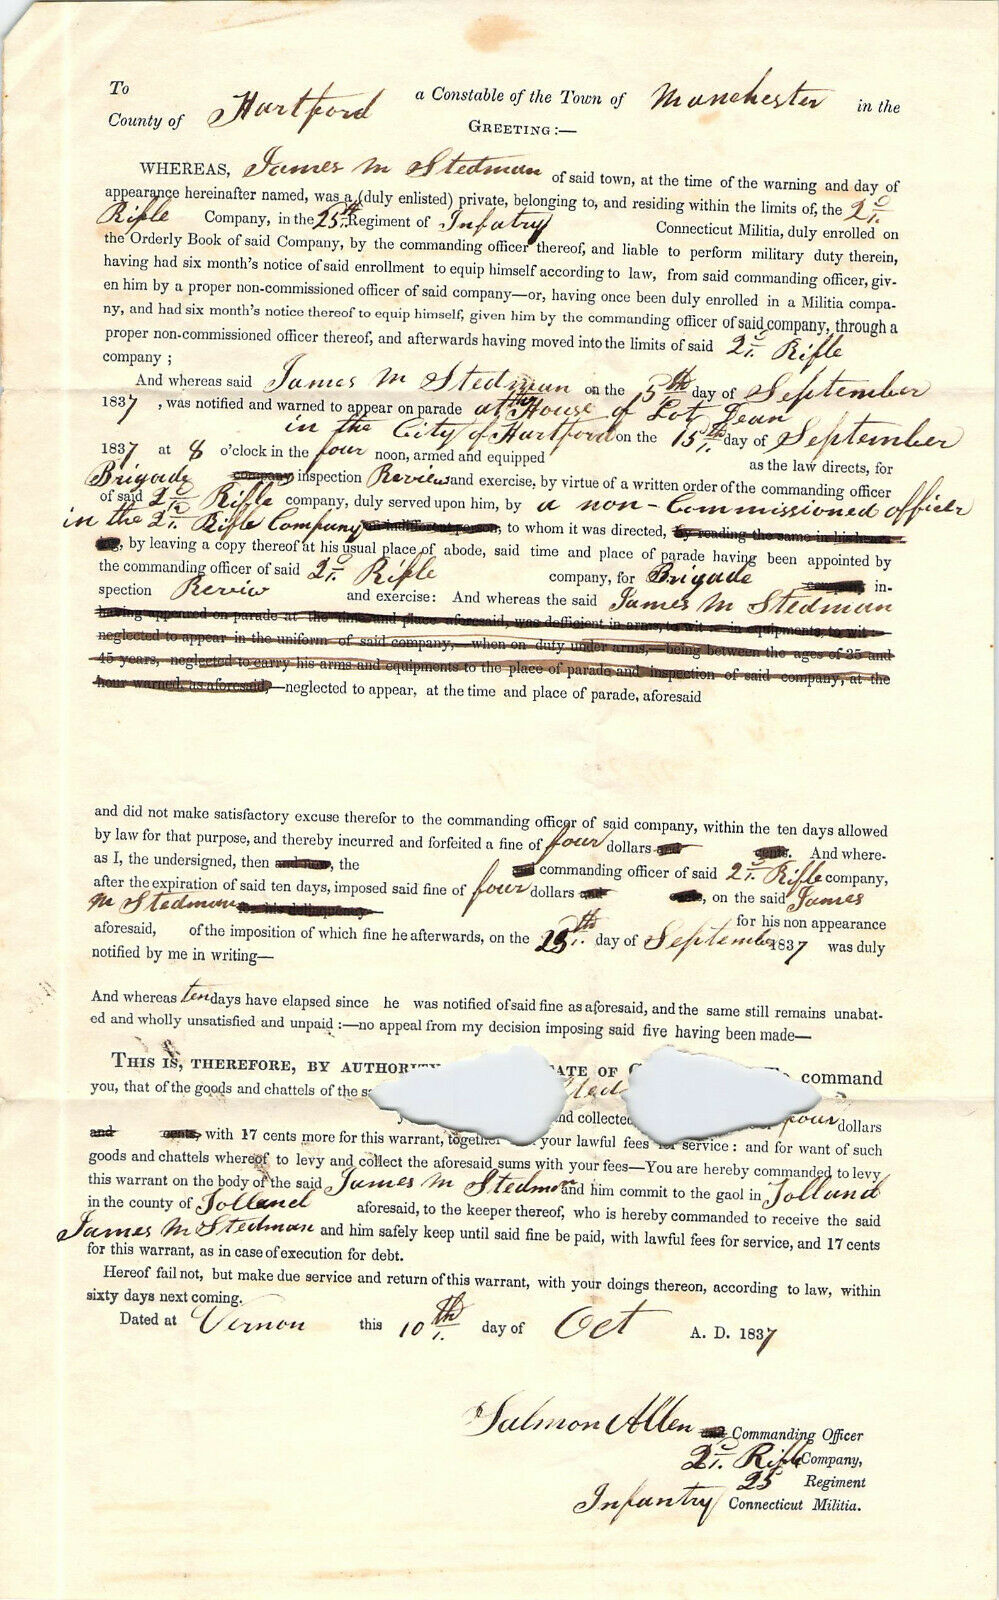 To a Constable of the Town of Manchester in the
County of Hartford
GREETING:—
WHEREAS, James M Stedman of said town, at the time of the warning and day of
appearance hereinafter named, was a (duly enlisted) private, belonging to, and residing within the limits of, the 2d
Rifle Company, in the 25th Regiment of Infatry Connecticut Militia, duly enrolled on
the Orderly Book of said Company, by the commanding officer thereof, and liable to perform military duty therein,
having had six month's notice of said enrollment to equip himself according to law, from said commanding officer, giv-
en him by a proper non-commissioned officer of said company—or, having once been duly enrolled in a Militia compa-
ny, and had six month's notice thereof to equip himself, given him by the commanding officer of said company, through a
proper non-commissioned officer thereof, and afterwards having moved into the limits of said 2d Rifle
company ;
And whereas said James M Stedman on the 5th day of September
1837 , was notified and warned to appear on parade at the House of Lot Dean
in the City of Hartford on the 15th day of September
1837 at 8 o'clock in the four noon, armed and equipped as the law directs, for
Brigade company inspection Review and exercise, by virtue of a written order of the commanding officer
of said 2d Rifle company, duly served upon him, by a non-Commissioned officer
in the 2d Rifle Company or indifferent person, to whom it was directed, by reading the same in his hear-
ing, by leaving a copy thereof at his usual place of abode, said time and place of parade having been appointed by
the commanding officer of said 2d Rifle company, for Brigade company in-
spection Review and exercise: And whereas the said James M Stedman
having appeared on parade at the time and place aforesaid, was deficient in arms, to wit :— in equipments, to wit :—
neglected to appear in the uniform of said company,—when on duty under arms,—being between the ages of 35 and
45 years, neglected to carry his arms and equipments to the place of parade and inspection of said company, at the
hour warned, as aforesaid,—neglected to appear, at the time and place of parade, aforesaid
and did not make satisfactory excuse therefor to the commanding officer of said company, within the ten days allowed
by law for that purpose, and thereby incurred and forfeited a fine of four dollars and cents. And where-
as I, the undersigned, then and now, the and commanding officer of said 2d Rifle company,
after the expiration of said ten days, imposed said fine of four dollars and cents, on the said James
M Stedman for his delinquency for his non appearance
aforesaid, of the imposition of which fine he afterwards, on the 25th day of September 1837 was duly
notified by me in writing—
And whereas ten days have elapsed since he was notified of said fine as aforesaid, and the same still remains unabat-
ed and wholly unsatisfied and unpaid :—no appeal from my decision imposing said five having been made—
THIS IS, THEREFORE, BY AUTHORITY ATE OF command
you, that of the goods and chattels of the sa Sted
nd collected four dollars
and cents, with 17 cents more for this warrant, together your lawful fees for service : and for want of such
goods and chattels whereof to levy and collect the aforesaid sums with your fees—You are hereby commanded to levy
this warrant on the body of the said James M Stedman and him commit to the gaol in Tolland
in the county of Tolland aforesaid, to the keeper thereof, who is hereby commanded to receive the said
James M Stedman and him safely keep until said fine be paid, with lawful fees for service, and 17 cents
for this warrant, as in case of execution for debt.
Hereof fail not, but make due service and return of this warrant, with your doings thereon, according to law, within
sixty days next coming.
Dated at Vernon this 10th day of Oct A. D. 1837
Salmon Allen and Commanding Officer
2d Rifle Company,
25 Regiment
Infantry Connecticut Militia.